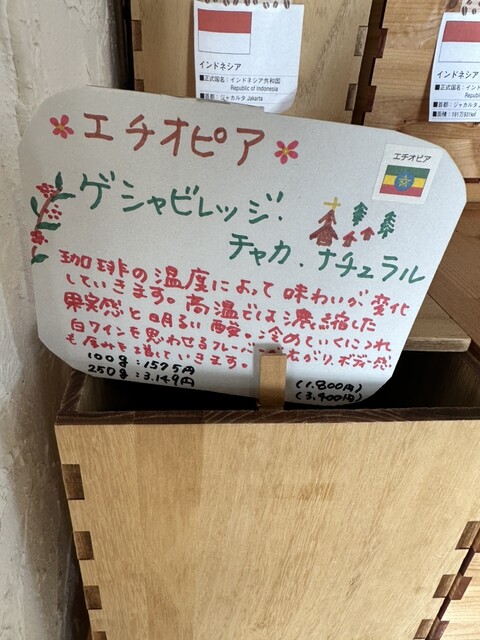 インドネシア
■正式国名：インドネシア共和国
Republic of Indonesia
■首都：ジャカルタ Jakarta
インドネシア
■正式国名：インドネシア
Republic
■首都：ジャカルタ
■面積：191万931㎢
エチオピア
エチオピア
ゲシャビレッジ.
チャカ.ナチュラル
珈琲の温度によって味わいが変化
していきます。高温では濃縮した
果実感と明るい酸。冷めていくにつれ
白ワインを思わせるフレー がり、ボディ感
も厚みを増していきます。
100g:1575円 (1.800円)
250g:3.149円 (3.400円)